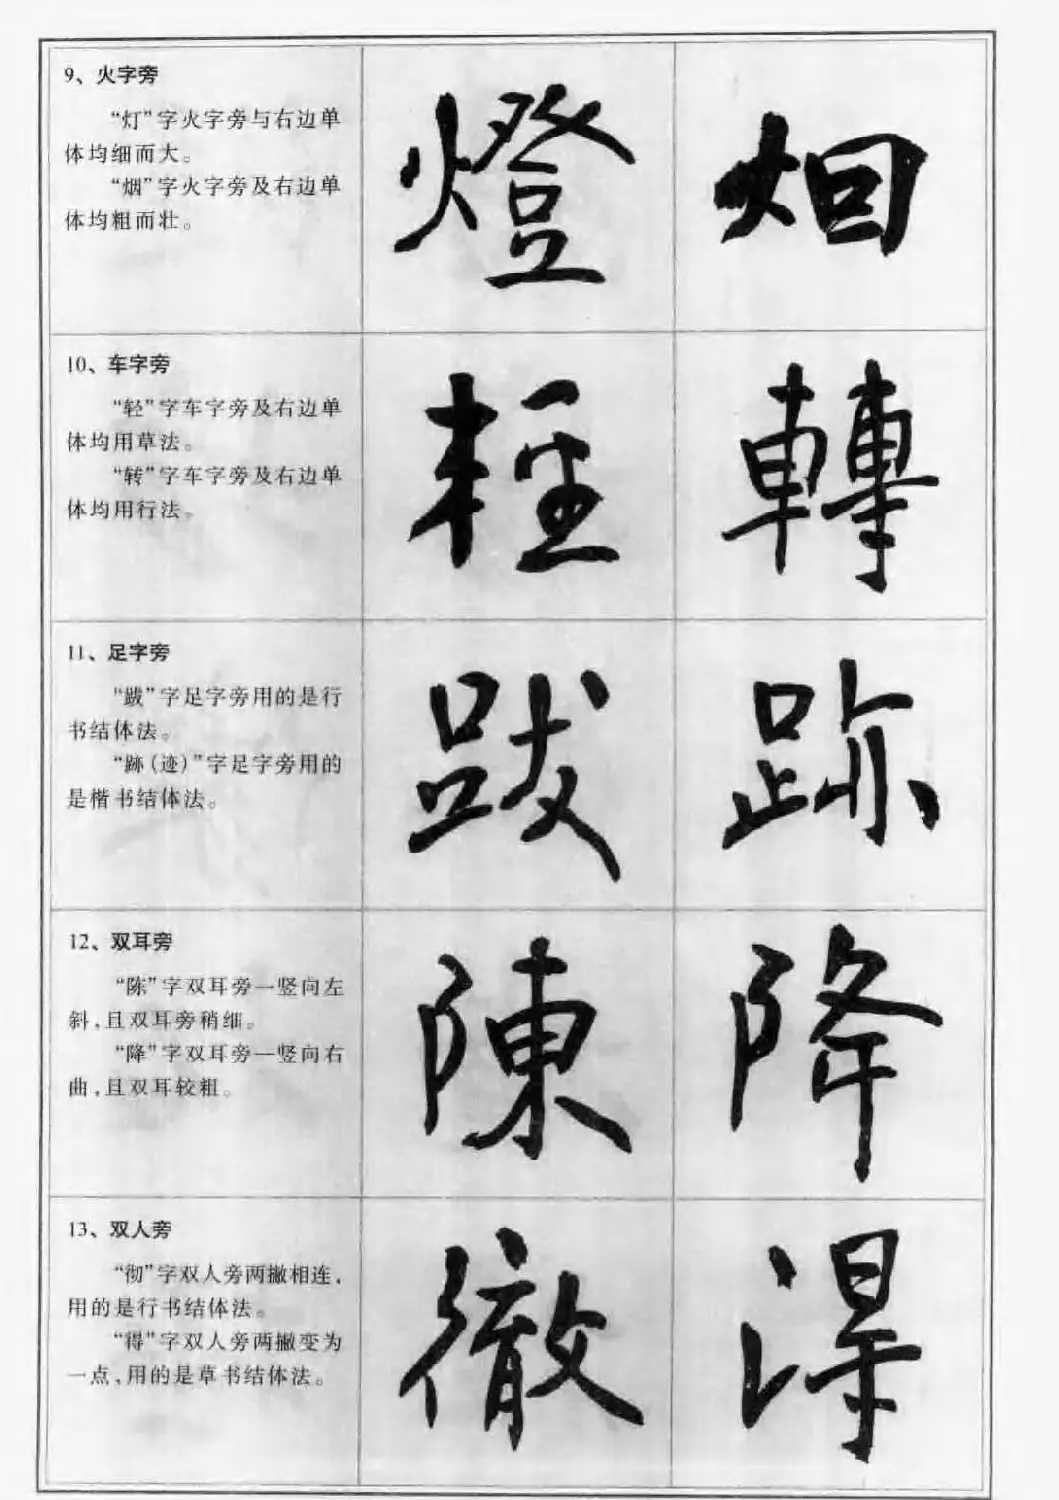 9、火字旁
“灯”字火字旁与右边单
体均细而大。
“烟”字火字旁及右边单
体均粗而壮。
燈 烟
10、车字旁
“轻”字车字旁及右边单
体均用草法。
“转”字车字旁及右边单
体均用行法。
輕 轉
11、足字旁
“跋”字足字旁用的是行
书结体法。
“跡(迹)”字足字旁用的
是楷书结体法。
跋 跡
12、双耳旁
“陈”字双耳旁一竖向左
斜,且双耳旁稍细。
“降”字双耳旁一竖向右
曲,且双耳较粗。
陳 降
13、双人旁
“彻”字双人旁两撇相连,
用的是行书结体法。
“得”字双人旁两撇变为
一点,用的是草书结体法。
徹 得